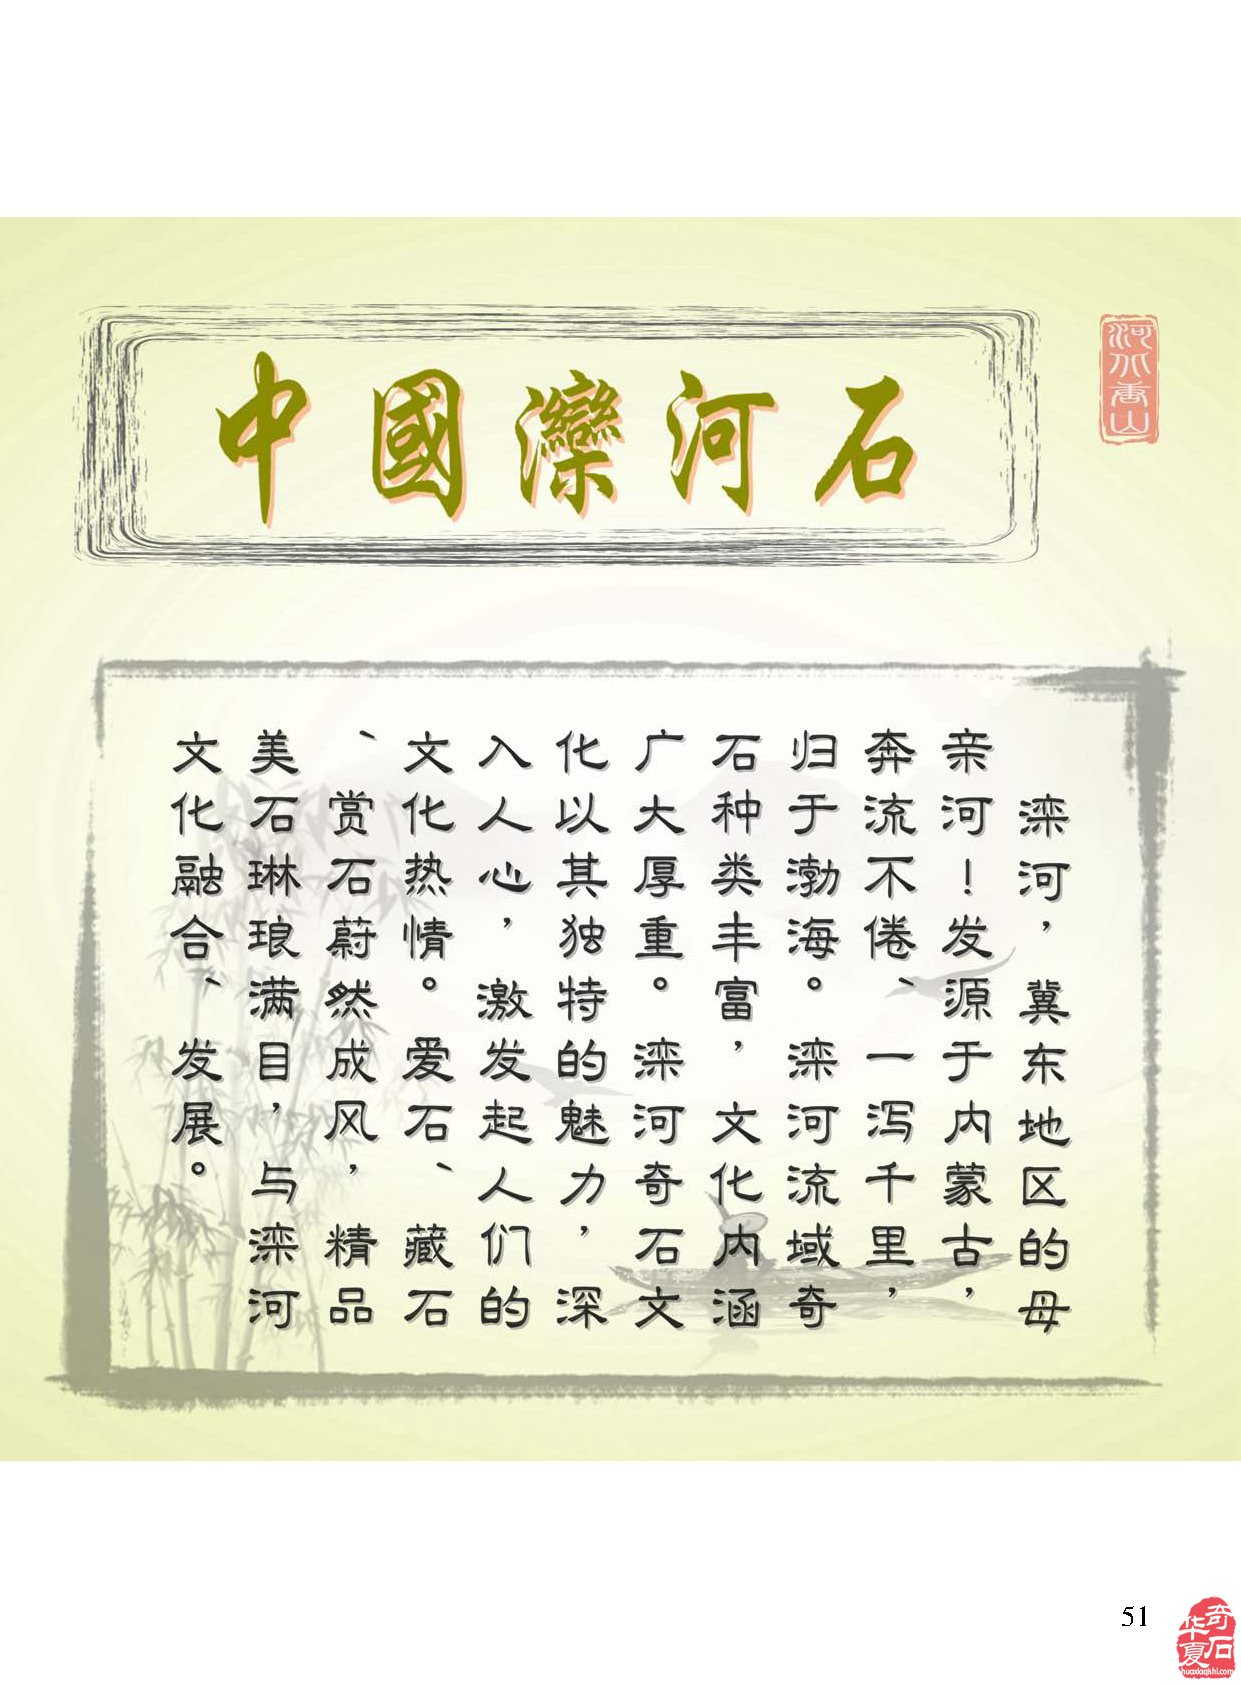 中國灤河石
河北唐山
滦河，冀东地区的母
亲河！发源于内蒙古，
奔流不倦、一泻千里，
归于渤海。滦河流域奇
石种类丰富，文化内涵
广大厚重。滦河奇石文
化以其独特的魅力，深
入人心，激发起人们的
文化热情。爱石、藏石
、赏石蔚然成风，精品
美石琳琅满目，与滦河
文化融合、发展。
51
华夏奇石
huaxiaqishi.com